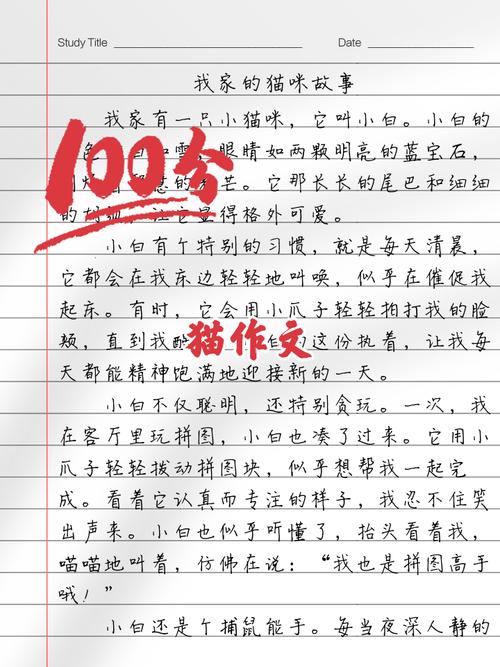 Study Title
Date
我家的猫咪故事
我家有一只小猫咪，它叫小白。小白的
色 白如雪，眼睛如两颗明亮的蓝宝石，
芒。它那长长的尾巴和细细
的 让它显得格外可爱。
100分
小白有个特别的习惯，就是每天清晨，
它都会在我床边轻轻地叫唤，似乎在催促我
起床。有时，它会用小爪子轻轻拍打我的脸
颊，直到我 的这份执着，让我每
猫作文
天都能精神饱满地迎接新的一天。
小白不仅聪明，还特别贪玩。一次，我
在客厅里玩拼图，小白也凑了过来。它用小
爪子轻轻拨动拼图块，似乎想帮我一起完
成。看着它认真而专注的样子，我忍不住笑
出声来。小白也似乎听懂了，抬头看着我，
喵喵地叫着，仿佛在说：“我也是拼图高手
哦！”
小白还是个捕鼠能手。每当夜深人静的